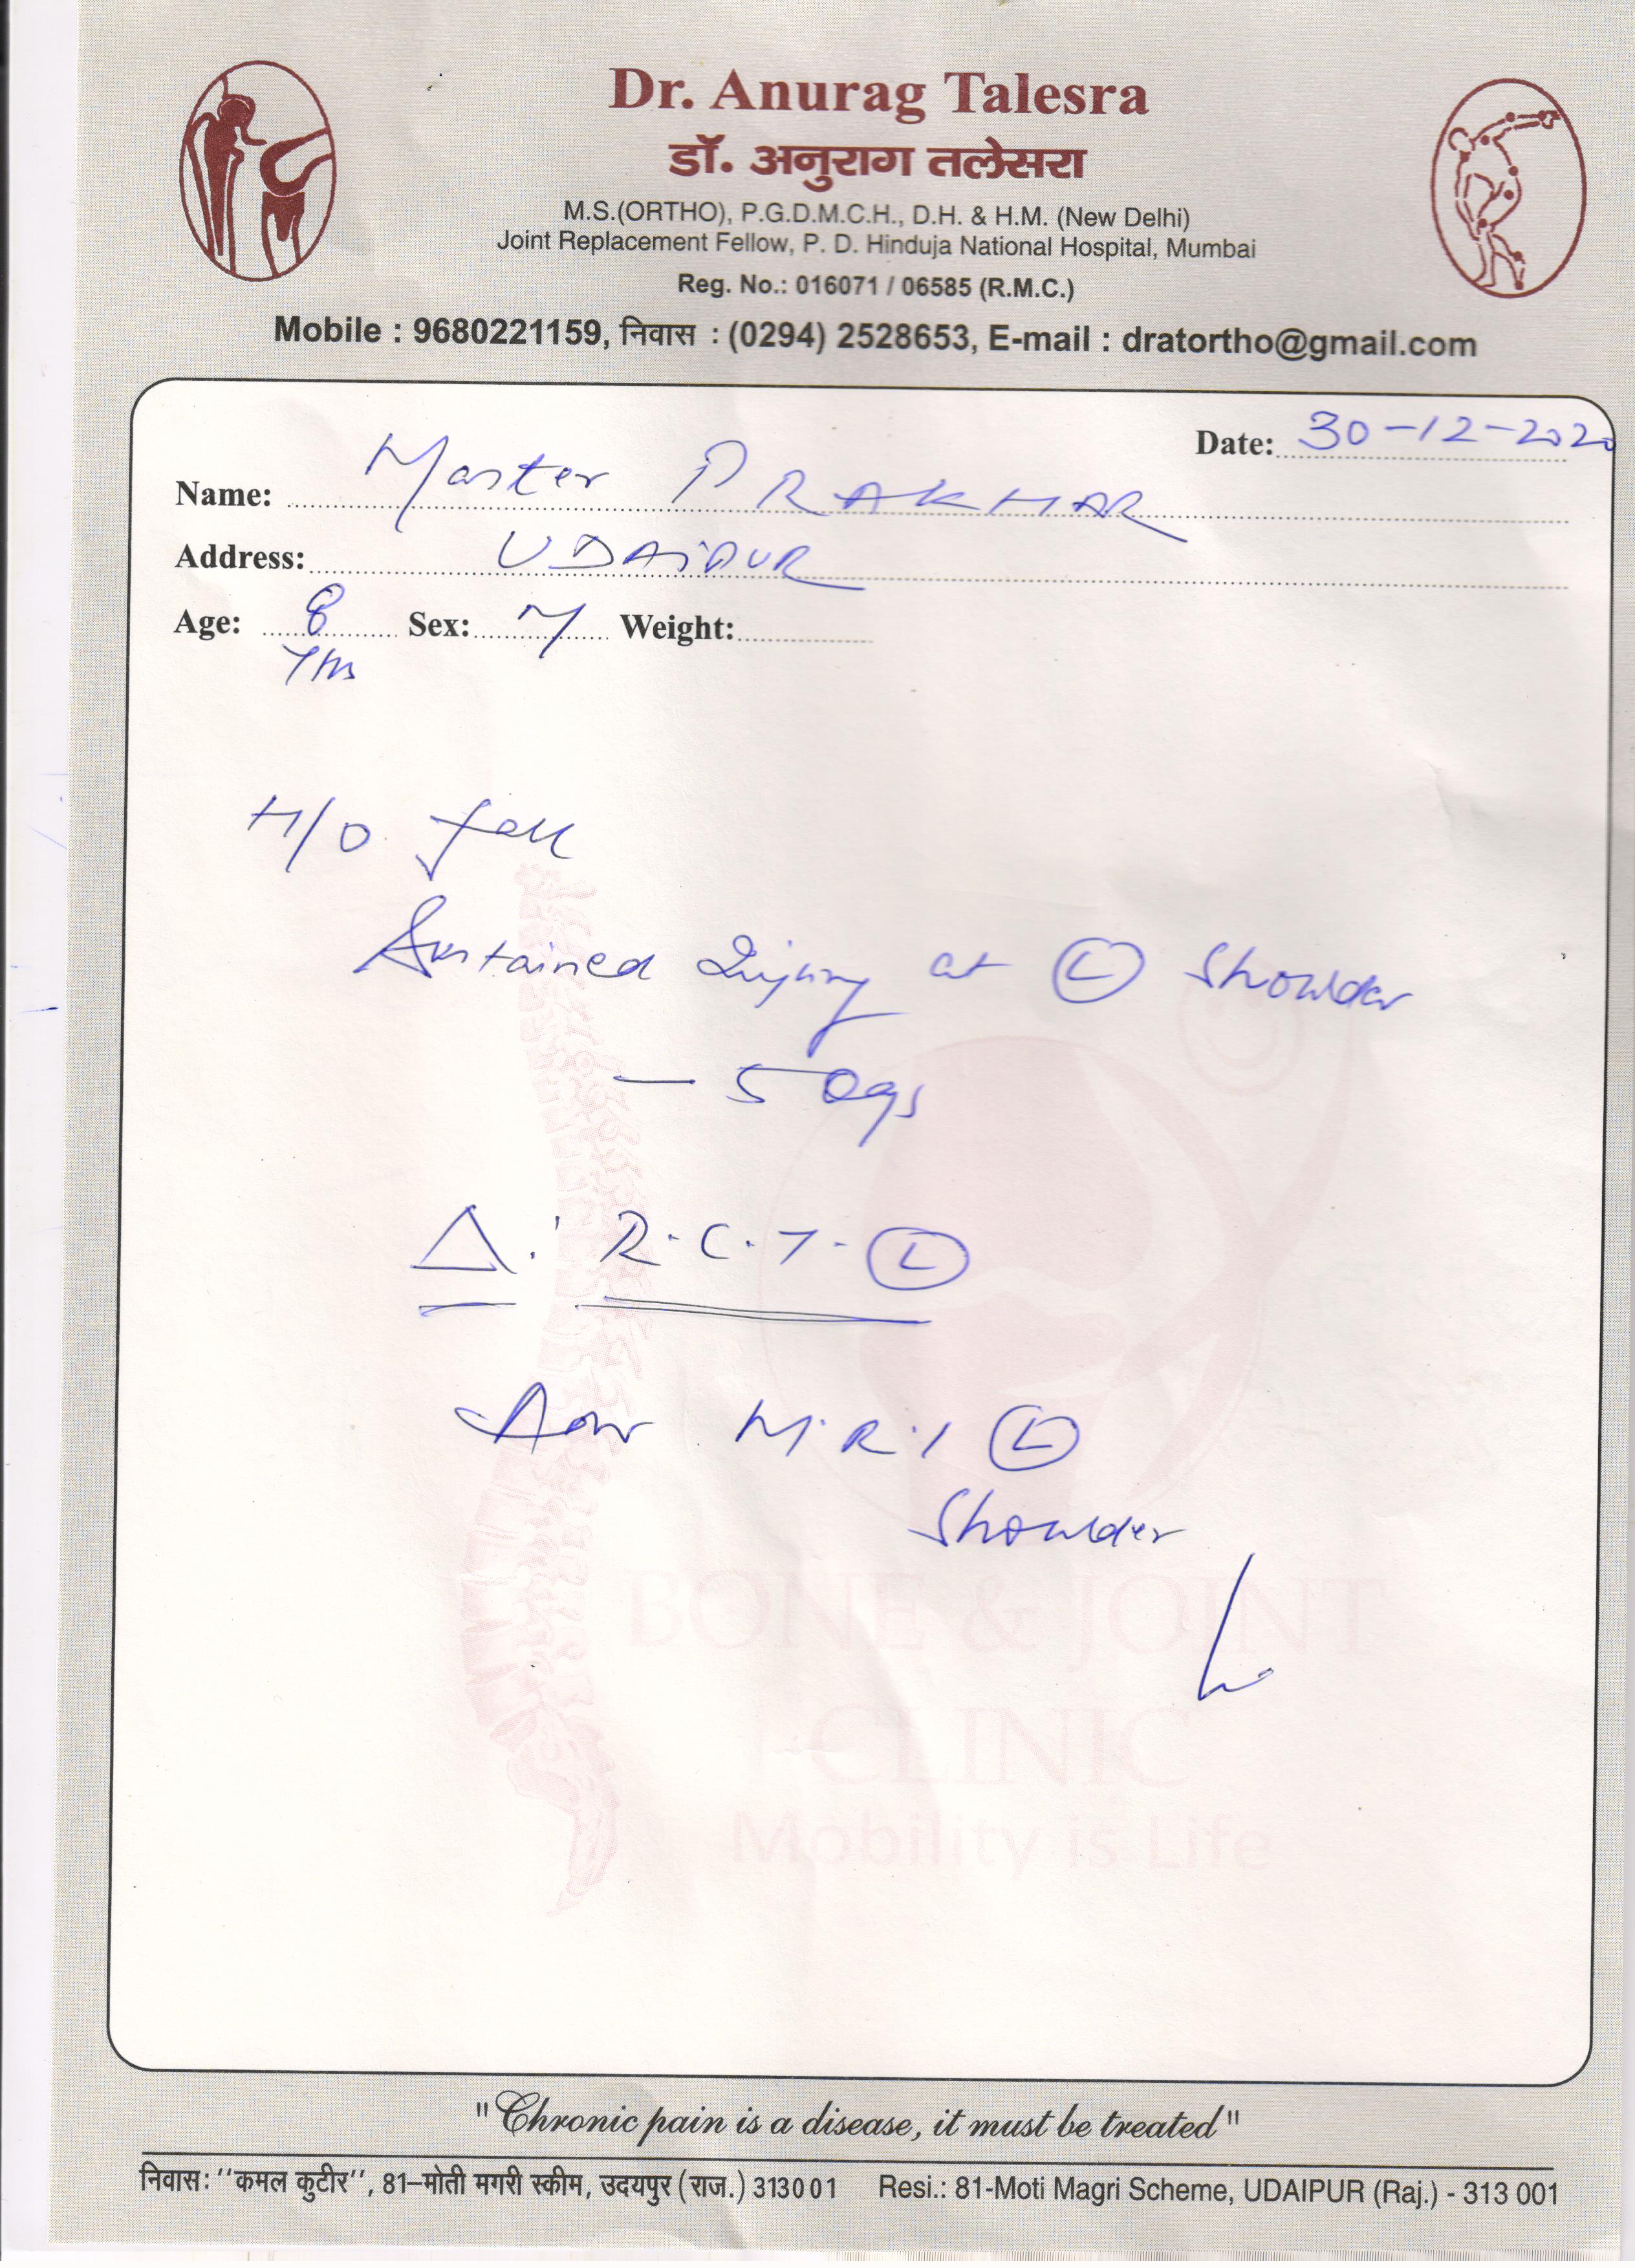 Dr. Anurag Talesra
डॉ. अनुराग तलेसरा
M.S.(ORTHO), P.G.D.M.C.H., D.H. & H.M. (New Delhi)
Joint Replacement Fellow, P. D. Hinduja National Hospital, Mumbai
Reg. No.: 016071 / 06585 (R.M.C.)
Mobile : 9680221159, निवास : (0294) 2528653, E-mail : dratortho@gmail.com
Date: 30-12-2020
Name: Master PRAKHAR
Address: UDAiPUR
Age: 8 Yrs Sex: M Weight:
H/O fall
Sustained Injury at (L) Shoulder
— 5 Dys
Δ: R.C.T. (L)
Adv M.R.I (L)
Shoulder
BONE & JOINT
CLINIC
Mobility is Life
"Chronic pain is a disease, it must be treated"
निवास: ''कमल कुटीर'', 81–मोती मगरी स्कीम, उदयपुर (राज.) 313001 Resi.: 81-Moti Magri Scheme, UDAIPUR (Raj.) - 313 001